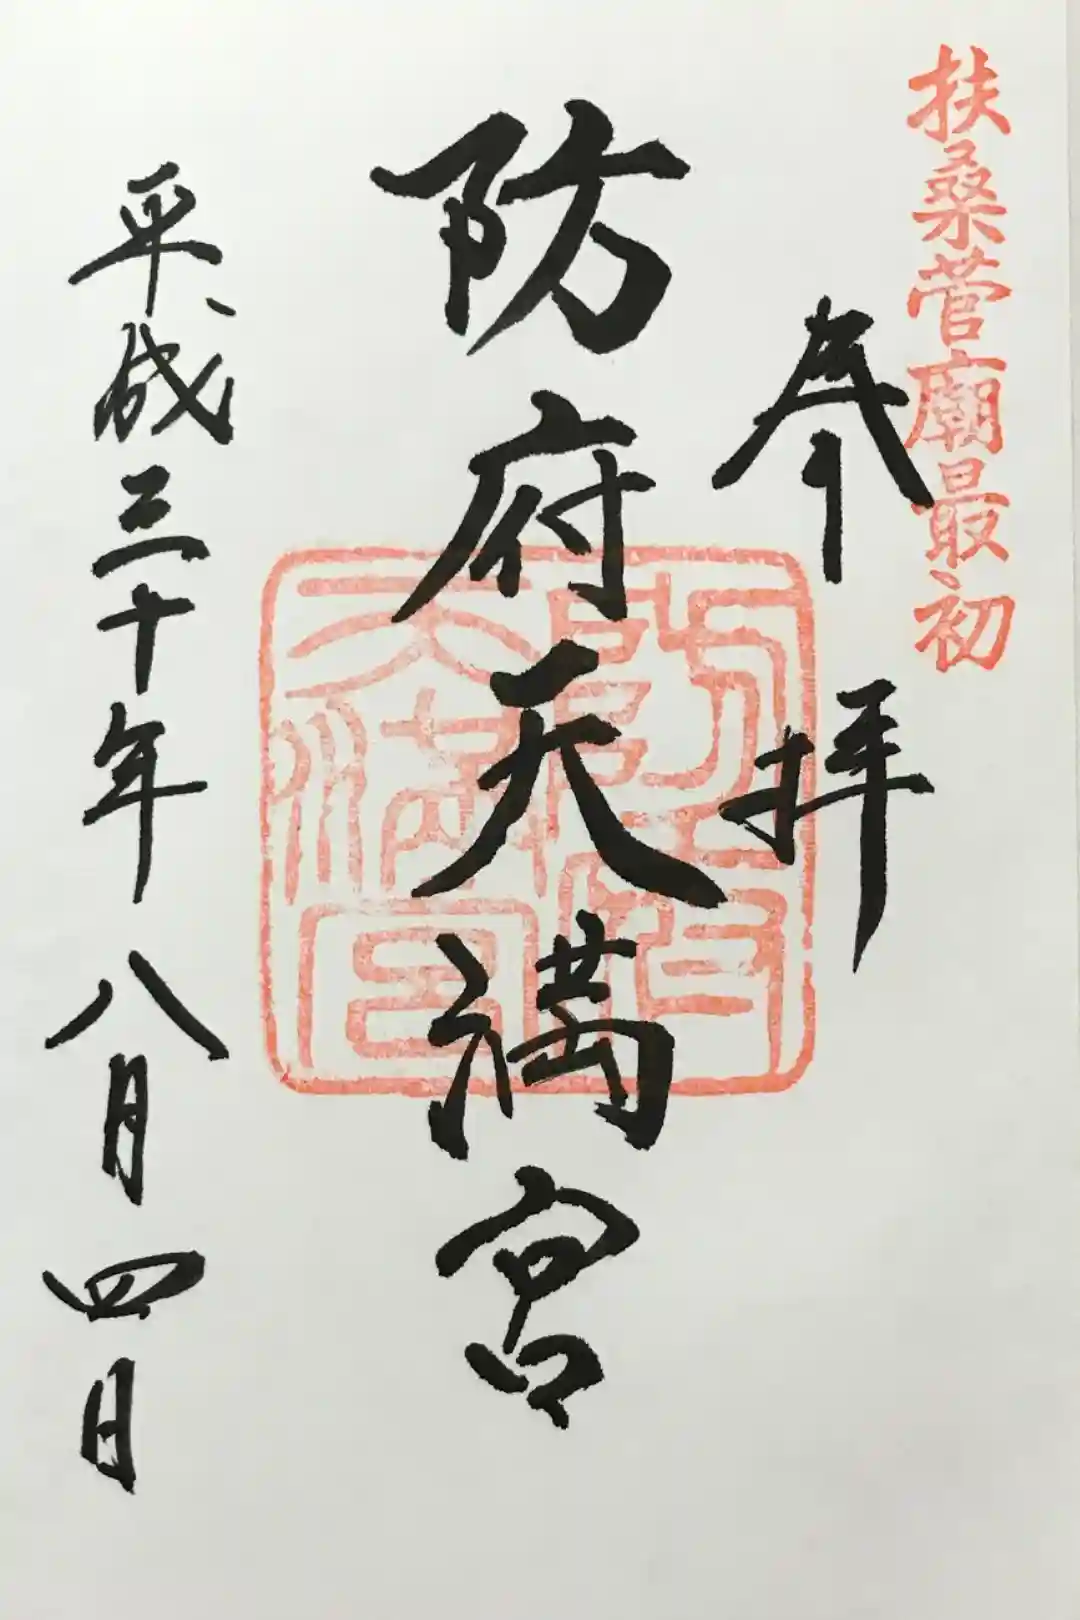 扶桑菅廟最初
奉拝
防府天満宮
防府天満宮
平成三十年八月四日